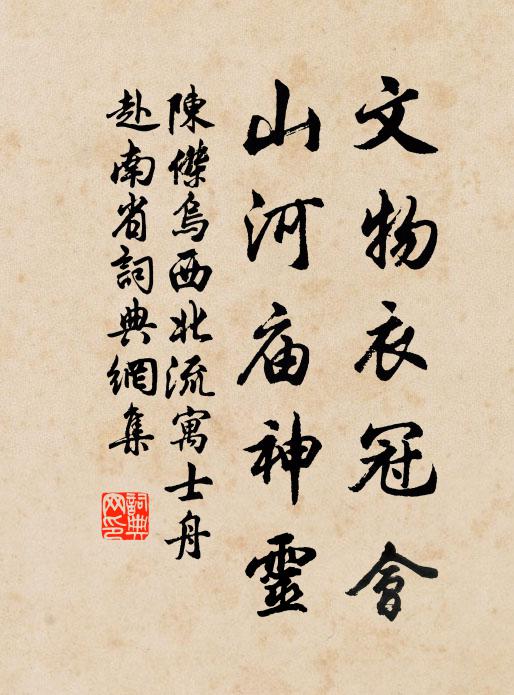 文物衣冠會
山河庙神靈
陳傑烏西北流寓士舟
赴南省詞典網集
詞典網印